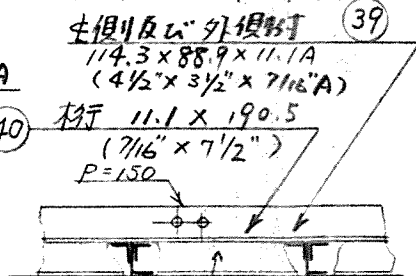 主側及び外側材
39
114.3×88.9×11.1A
(4½"×3½"×7/16"A)
A
40
桁 11.1×190.5
(7/16"×7½")
P=150